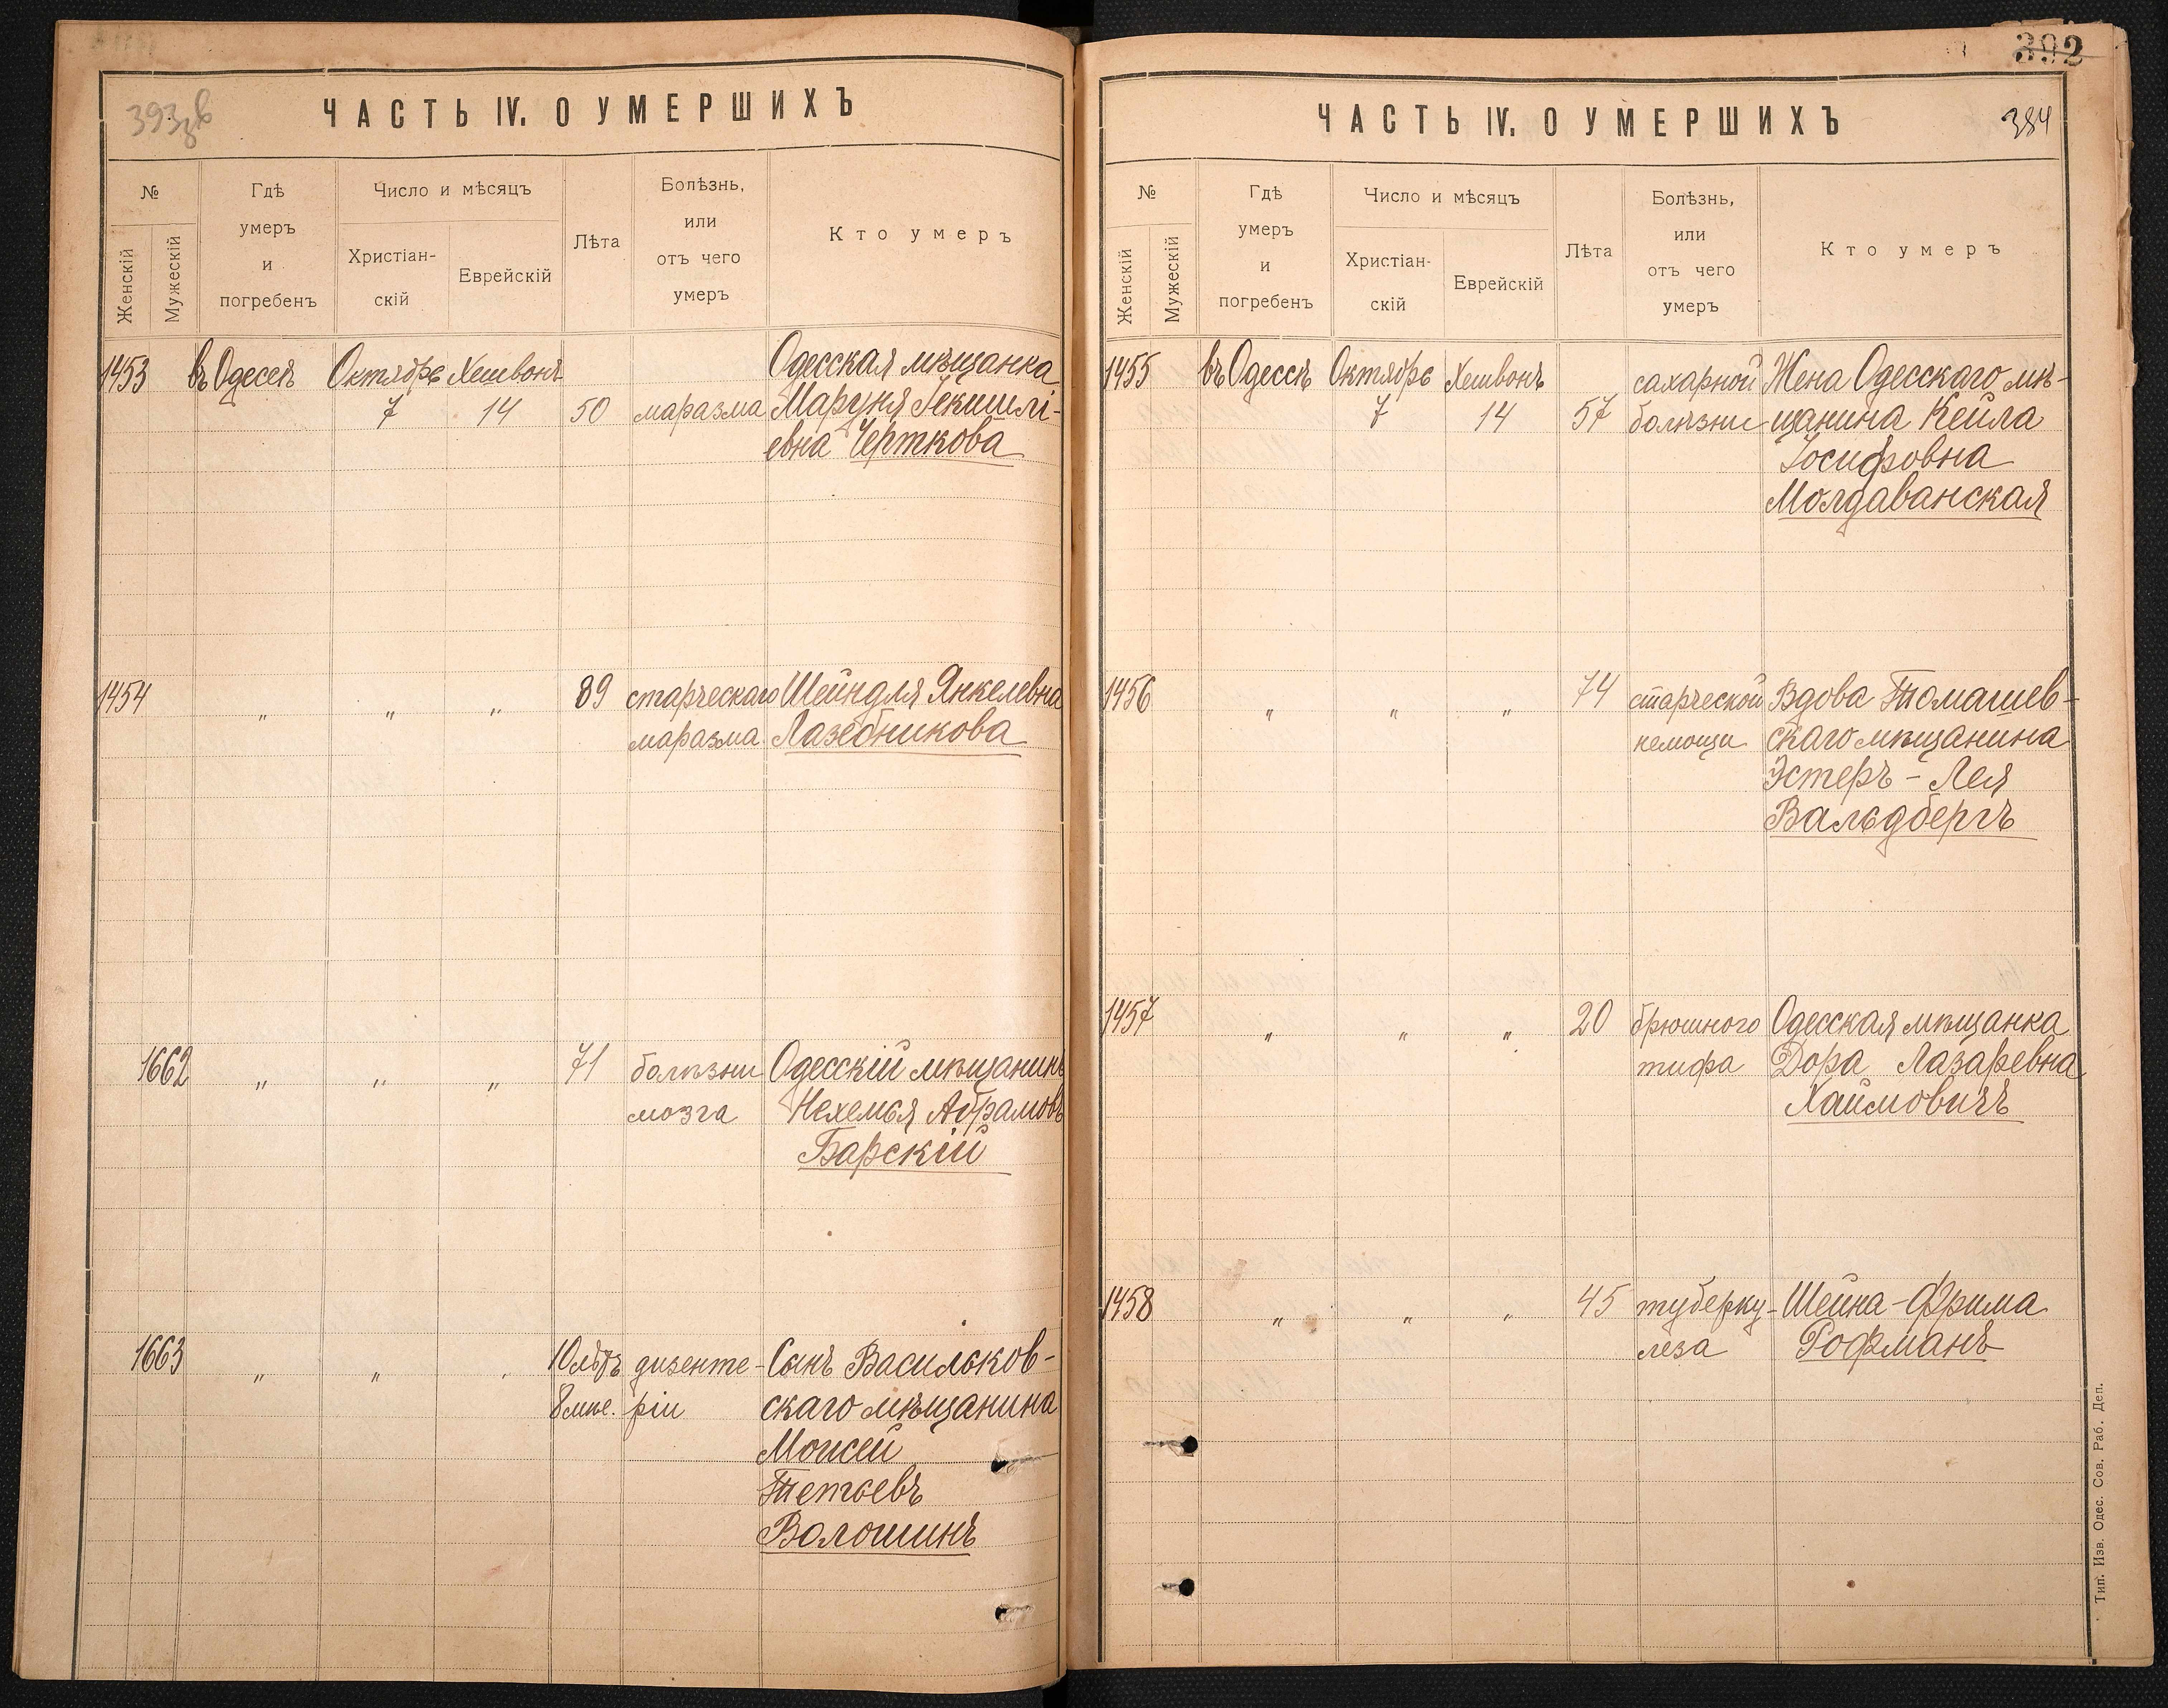 393 зв
ЧАСТЬ IV. О УМЕРШИХЪ
№
Женскій
Мужескій
Гдѣ
умеръ
и
погребенъ
Число и мѣсяцъ
Христіан-
скій
Еврейскій
Лѣта
Болѣзнь,
или
отъ чего
умеръ
Кто умеръ
1453 въ Одессѣ Октябрь Хешвонъ Одесская мѣщанка
7 14 50 маразма Маруня
евна Черткова
1454 „ „ „ 89 старческаго Шейндля Янкелевна
маразма Лазебникова
1662 „ „ „ 71 болѣзни Одесскій мѣщанинъ
мозга Нехемья Абрамовъ
Барскій
1663 „ „ „ 10 лѣтъ дизенте- Сынъ Васильков-
8 мѣс. ріи скаго мѣщанина
Моисей
Тетьевъ
Волошинъ
392
ЧАСТЬ IV. О УМЕРШИХЪ
384
№
Женскій
Мужескій
Гдѣ
умеръ
и
погребенъ
Число и мѣсяцъ
Христіан-
скій
Еврейскій
Лѣта
Болѣзнь,
или
отъ чего
умеръ
Кто умеръ
1455 въ Одессѣ Октябрь Хешвонъ сахарной Жена Одесскаго мѣ-
7 14 57 болѣзни щанина Кейла
Іосифовна
Молдаванская
1456 „ „ „ 74 старческой Вдова Томашев-
немощи скаго мѣщанина
Эстеръ-Лея
Вальдбергъ
1457 „ „ „ 20 брюшного Одесская мѣщанка
тифа Дора Лазаревна
Хаймовичъ
1458 „ „ „ 45 туберку- Шейна-Фрима
леза Рофманъ
Тип. Изв. Одес. Сов. Раб. Деп.